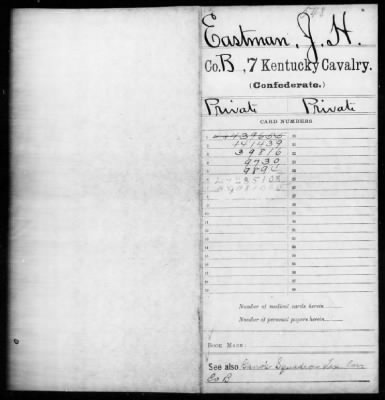 Eastman, J. H.
Co. B, 7 Kentucky Cavalry.
(Confederate.)
Private Private
CARD NUMBERS
1
2 141439
3 39816
4 9730
5 9894
6
7
8
9
10
11
12
13
14
15
16
17
18
19
Number of medical cards herein
Number of personal papers herein
BOOK MARK:
See also Gano's Squadron Tex. Cav.
Co B